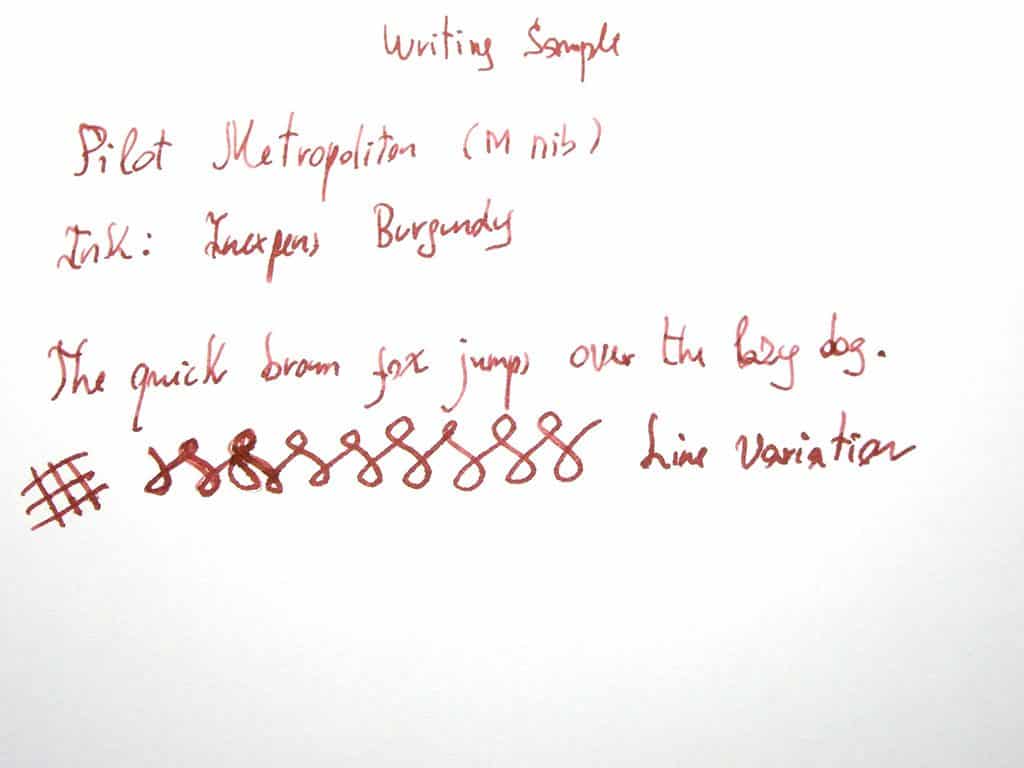 Writing Sample
Pilot Metropolitan (M nib)
Ink: Inexpens Burgundy
The quick brown fox jumps over the lazy dog.
Line Variation